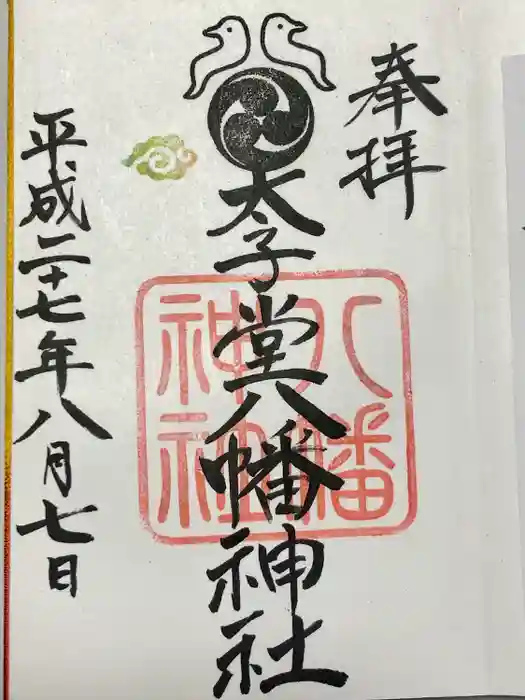 奉拝
太子堂八幡神社
八幡
神社
平成二十七年八月七日